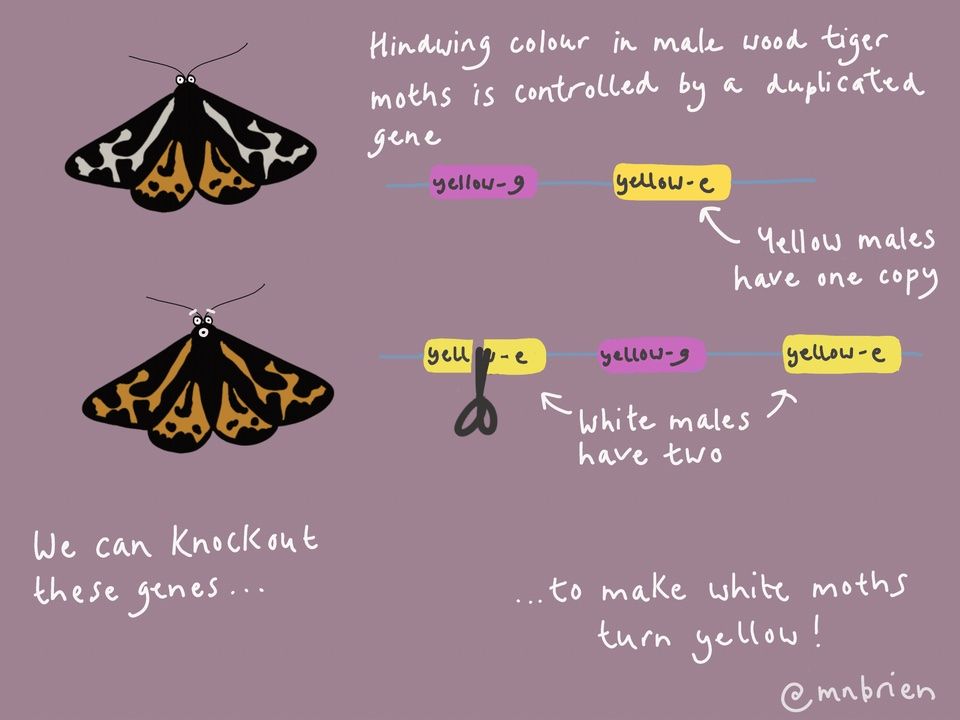 Hindwing colour in male wood tiger
moths is controlled by a duplicated
gene
yellow-g yellow-e
Yellow males
have one copy
yell w-e yellow-g yellow-e
White males
have two
We can knockout
these genes...
...to make white moths
turn yellow!
@mnbrien